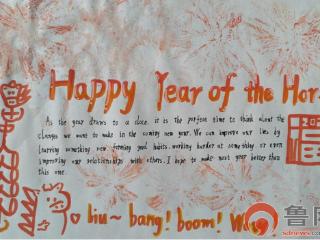 Happy Year of the Hor
As the year draws to a close, it is the perfect time to think about the
changes we want to make in the coming new year. We can improve our lies by
learning something new, forming good habits, working harder at something or even
improving our relationships with others. I hope to make next year better than
this one.
Liu~ bang! boom! Wang
鲁网
sdnews.com